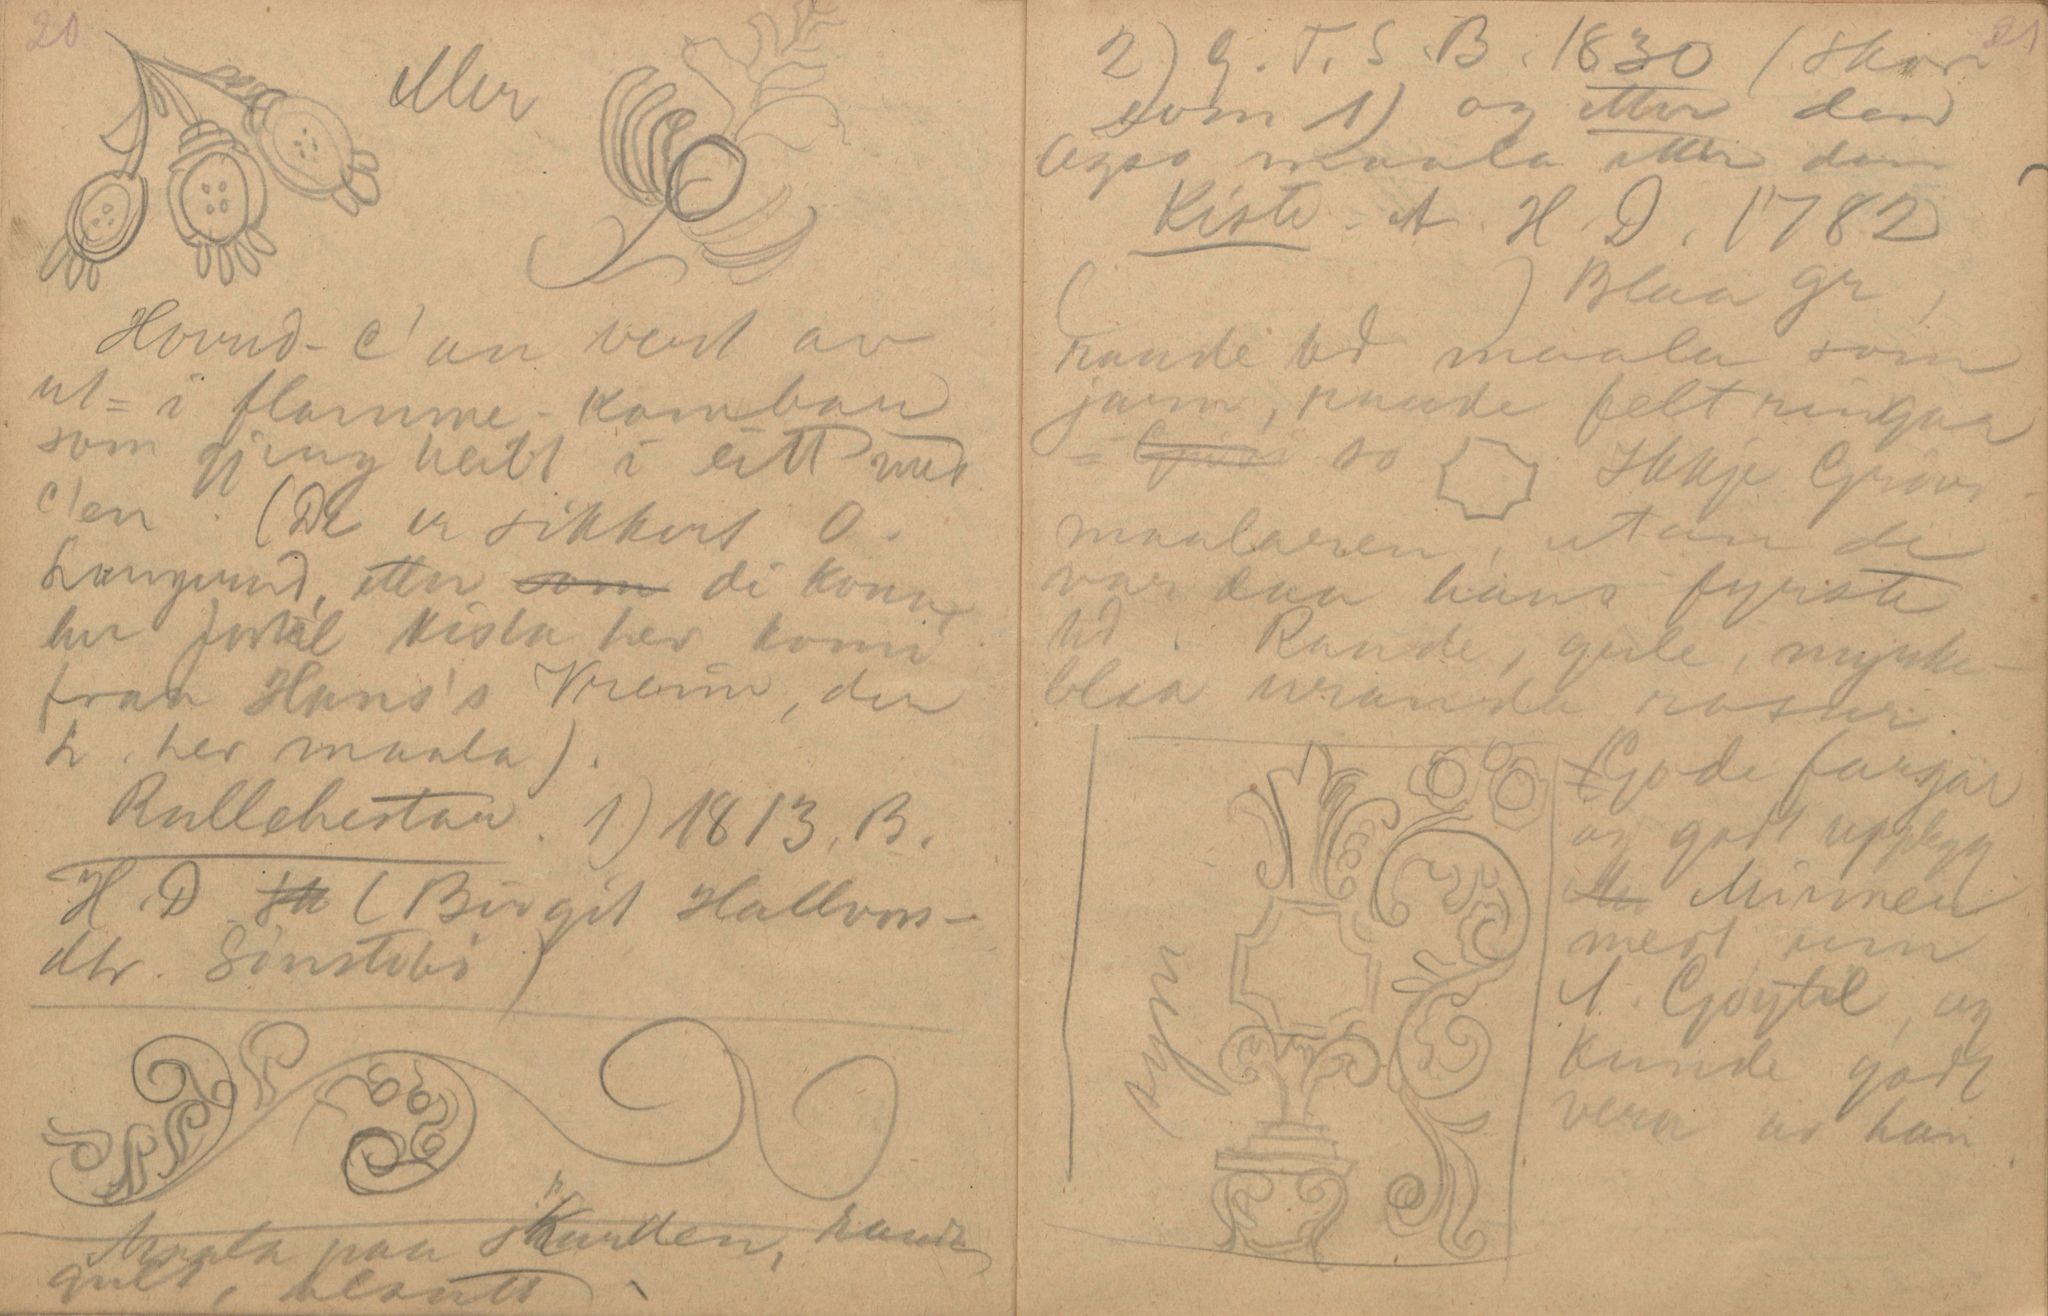 20
eller
Hovud-C'en vert av
ut = i flamme-kamban
som gjeng heilt i eitt med
C'en. (De er sikkert O.
Langerud, etter som di kona
her fortel kista her komi
fraa Hans's Kreim, den
L. her maala).
Rullekistar. 1) 1813. B.
H. D. (Birgit Hallvors-
dtr. Sinstebi)
paa skurden, raudt
gult, blaatt
21
2) G. T. S. B. 1830 (Skori
som 1) og etter den
Ogso maala etter den
Kiste. A. H. D. 1782
( ) Blaa gr,
raude bd maala som
jarn, raude felt ringaa
= so Ikkje
maalaren, utan de
var daa hans fyrste
td. Raude, gule, myrke-
blaa uranda rosur.
(Gode fargar
og godt upplegg
Minner
mest um
A. Gøytil, og
kunde godt
vera av han
sym